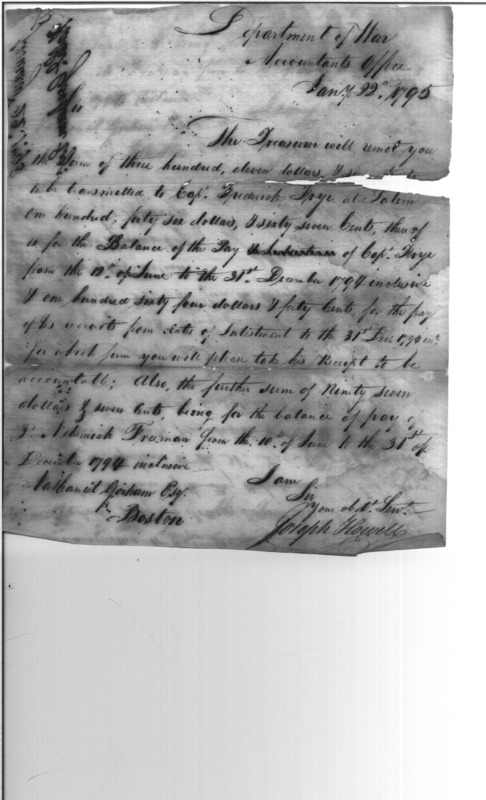 Department of War
Accountants Office
Jany. 22d. 1795
Sir
The Treasurer will remit you
the Sum of three hundred, eleven dollars, &
to be transmitted to Capt. Frederick Frye at Salem
One hundred, forty six dollars, & sixty seven Cents, thereof
is for the Balance of the Pay of Capt. Frye
from the 10th. of June to the 31st. December 1794 inclusive
& one hundred sixty four dollars & forty Cents for the pay
of his recruits from date of Inlistment to the 31st Decr. 1794 incl
for which sum you will please take his Receipt to be
accountable; Also, the further sum of Ninety seven
dollars & seven Cents, being for the balance of pay of
Nehemiah Freeman from the 10. of June to the 31st of
December 1794 inclusive
I am
Sir
Your obdt. Servt.
Joseph Howell
Nathaniel Gorham Esqr.
Boston